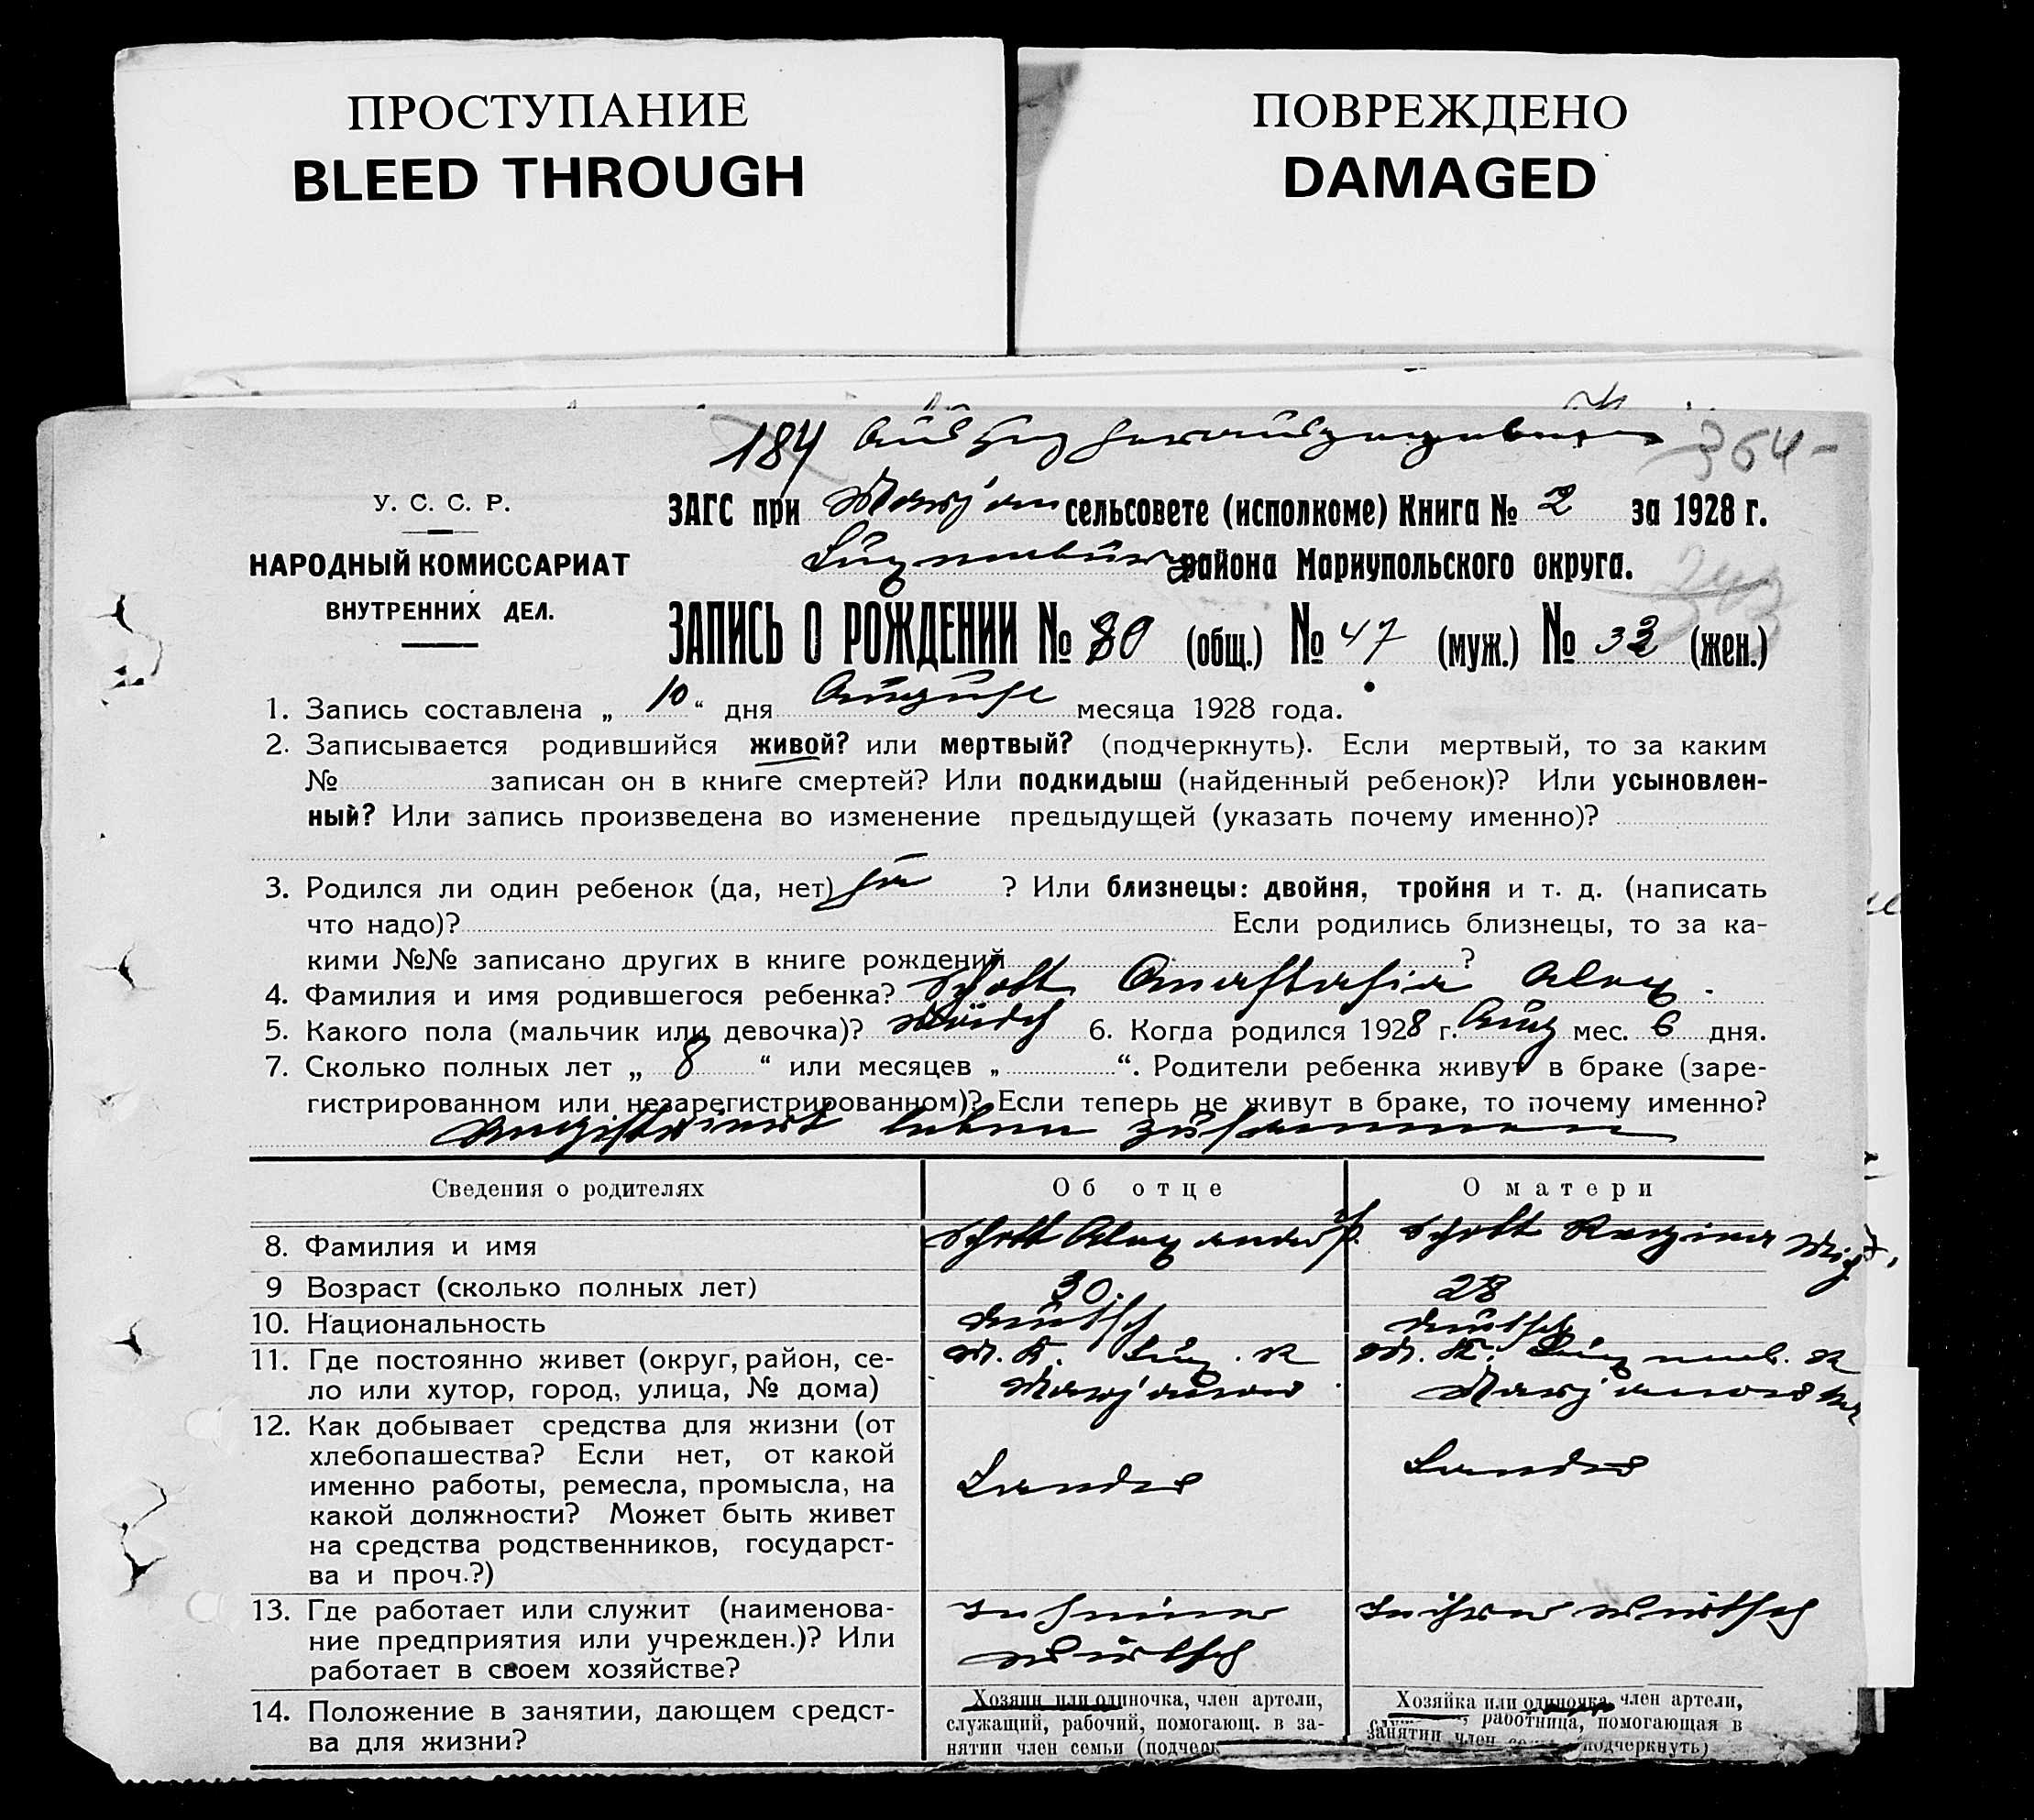 ПРОСТУПАНИЕ
BLEED THROUGH
ПОВРЕЖДЕНО
DAMAGED
184 Auszug herausgegeben 364-
У. С. С. Р.
НАРОДНЫЙ КОМИССАРИАТ
ВНУТРЕННИХ ДЕЛ.
ЗАГС при Marjan сельсовете (исполкоме) Книга № 2 за 1928 г.
Luxemburg района Мариупольского округа.
ЗАПИСЬ О РОЖДЕНИИ № 80 (общ.) № 47 (муж.) № 33 (жен.)
1. Запись составлена „ 10 “ дня August месяца 1928 года.
2. Записывается родившийся живой? или мертвый? (подчеркнуть). Если мертвый, то за каким
№ записан он в книге смертей? Или подкидыш (найденный ребенок)? Или усыновлен-
ный? Или запись произведена во изменение предыдущей (указать почему именно)?
3. Родился ли один ребенок (да, нет) ja ? Или близнецы: двойня, тройня и т. д. (написать
что надо)? Если родились близнецы, то за ка-
кими №№ записано других в книге рождений ?
4. Фамилия и имя родившегося ребенка? Schott Anastasia Alex.
5. Какого пола (мальчик или девочка)? Mädch 6. Когда родился 1928 г. Aug мес. 6 дня.
7. Сколько полных лет „ 8 “ или месяцев „ “. Родители ребенка живут в браке (заре-
гистрированном или незарегистрированном)? Если теперь не живут в браке, то почему именно?
Registriert leben zusammen
Сведения о родителях Об отце О матери
8. Фамилия и имя Schott Alexander Schott Regina
9 Возраст (сколько полных лет) 30. 28
10. Национальность deutsch deutsch
11. Где постоянно живет (округ, район, се- M. K. Lux. R M. K. Luxemb. R
ло или хутор, город, улица, № дома) Marjanow Marjanow
12. Как добывает средства для жизни (от
хлебопашества? Если нет, от какой
именно работы, ремесла, промысла, на
какой должности? Может быть живет
на средства родственников, государст-
ва и проч.?)
Landw Landw
13. Где работает или служит (наименова- In seiner In ihrer Wirtsch
ние предприятия или учрежден.)? Или Wirtsch
работает в своем хозяйстве?
14. Положение в занятии, дающем средст-
ва для жизни?
Хозяин или одиночка, член артели,
служащий, рабочий, помогающ. в за-
нятии член семьи
Хозяйка или одиночка член артели,
работница, помогающая в
занятии член подчеркнуть)